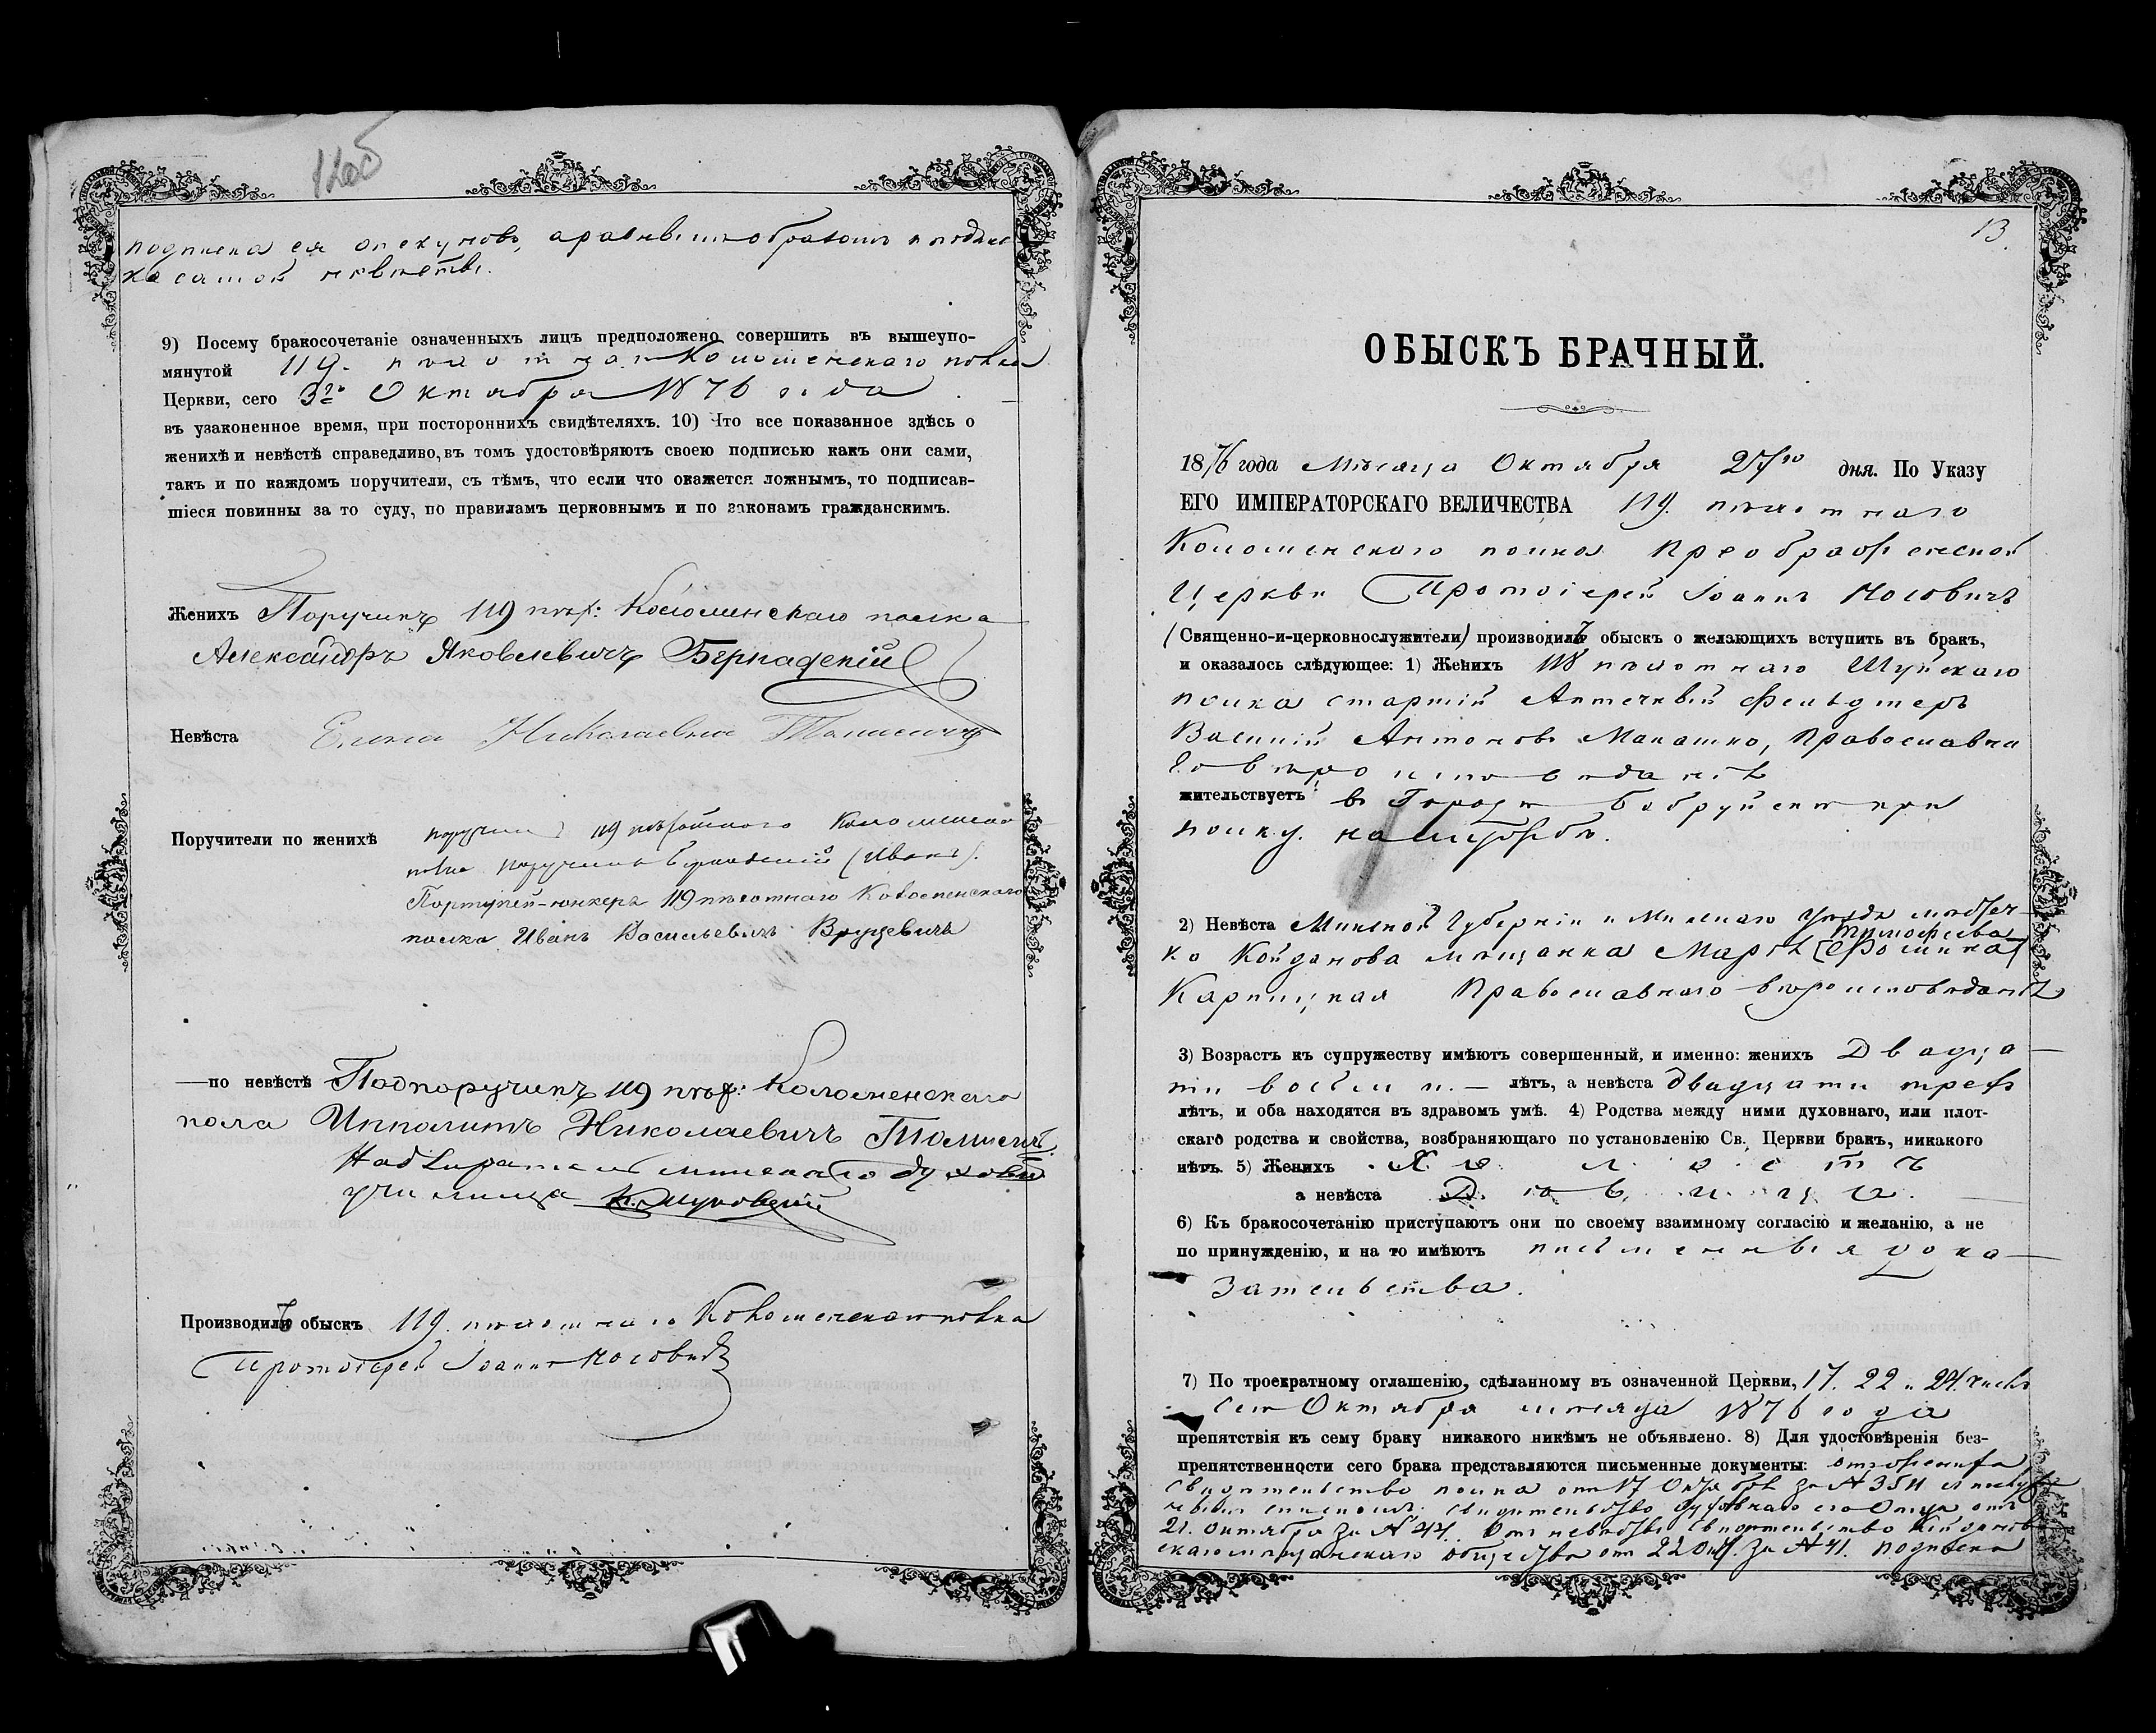 12об
подписка ея опекуновъ, а равнымъ образомъ и подпис
ка самой невѣсты.
9) Посему бракосочетаніе означенныхъ лицъ предположено совершить въ вышеупо-
мянутой 119. пѣхотнаго Коломенскаго полка
Церкви, сего 3го Октября 1876 года
въ узаконенное время, при постороннихъ свидѣтеляхъ. 10) Что все показанное здѣсь о
женихѣ и невѣстѣ справедливо, въ томъ удостовѣряютъ своею подписью какъ они сами,
такъ и по каждомъ поручители, съ тѣмъ, что если что окажется ложнымъ, то подписав-
шіеся повинны за то суду, по правиламъ церковнымъ и по законамъ гражданскимъ.
Женихъ Поручикъ 119 пѣх: Коломенскаго полка
Александръ Яковлевичъ Бернадскій
Невѣста Елена Николаевна
Поручители по женихѣ поручикъ 119 пѣхотнаго Коломенскаго
полка поручикъ (Иванъ).
Портупей-юнкеръ 119 пѣхотнаго Коломенскаго
полка Иванъ Васильевичъ
—по невѣстѣ Подпоручикъ 119 пѣх: Коломенскаго
полка Ипполитъ Николаевичъ
Надзиратель Минскаго духовн
училища
Производилъ обыскъ 119. пѣхотнаго Коломенскаго полка
Протоіерей Іоаннъ Носовичъ
13.
ОБЫСКЪ БРАЧНЫЙ.
1876 года Мѣсяца Октября 27го дня. По Указу
ЕГО ИМПЕРАТОРСКАГО ВЕЛИЧЕСТВА 119. пѣхотнаго
Коломенскаго полка Преображенской
Церкви Протоіерей Іоаннъ Носовичъ
(Священно-и-церковнослужители) производилъ обыскъ о желающихъ вступить въ бракъ,
и оказалось слѣдующее: 1) Женихъ 118 пѣхотнаго Шуйскаго
полка старшій Аптечный Фельдшеръ
Василій Антоновъ Макашко, Православна
го вѣроисповѣданія
жительствуетъ въ Городѣ Бобруйскѣ при
полку на службѣ.
2) Невѣста Минской Губерніи и Минскаго Уѣзда мѣстеч
ко Койданова мѣщанка Марія Тимофеева (Фомина)
Карпицкая Православнаго вѣроисповѣданія
3) Возрастъ къ супружеству имѣютъ совершенный, и именно: женихъ Двадца
ти восьми.— лѣтъ, а невѣста двадцати трехъ
лѣтъ, и оба находятся въ здравомъ умѣ. 4) Родства между ними духовнаго, или плот-
скаго родства и свойства, возбраняющаго по установленію Св. Церкви бракъ, никакого
нѣтъ. 5) Женихъ Холостъ
а невѣста Дѣвица.
6) Къ бракосочетанію приступаютъ они по своему взаимному согласію и желанію, а не
по принужденію, и на то имѣютъ письменныя дока
зательства.
7) По троекратному оглашенію, сдѣланному въ означенной Церкви, 17. 22 и 24. числъ
сего Октября мѣсяца 1876 года
препятствія къ сему браку никакого никѣмъ не объявлено. 8) Для удостовѣренія без-
препятственности сего брака представляются письменные документы: отъ жениха
Свидѣтельство полка отъ 17 Октября за № съ послуж
нымъ спискомъ. свидѣтельство духовнаго его Отца отъ
21. Октября за № 44. Отъ невѣсты Свидѣтельство Койданов
скаго мѣщанскаго общества отъ 22 Окт. за № 41. подписка